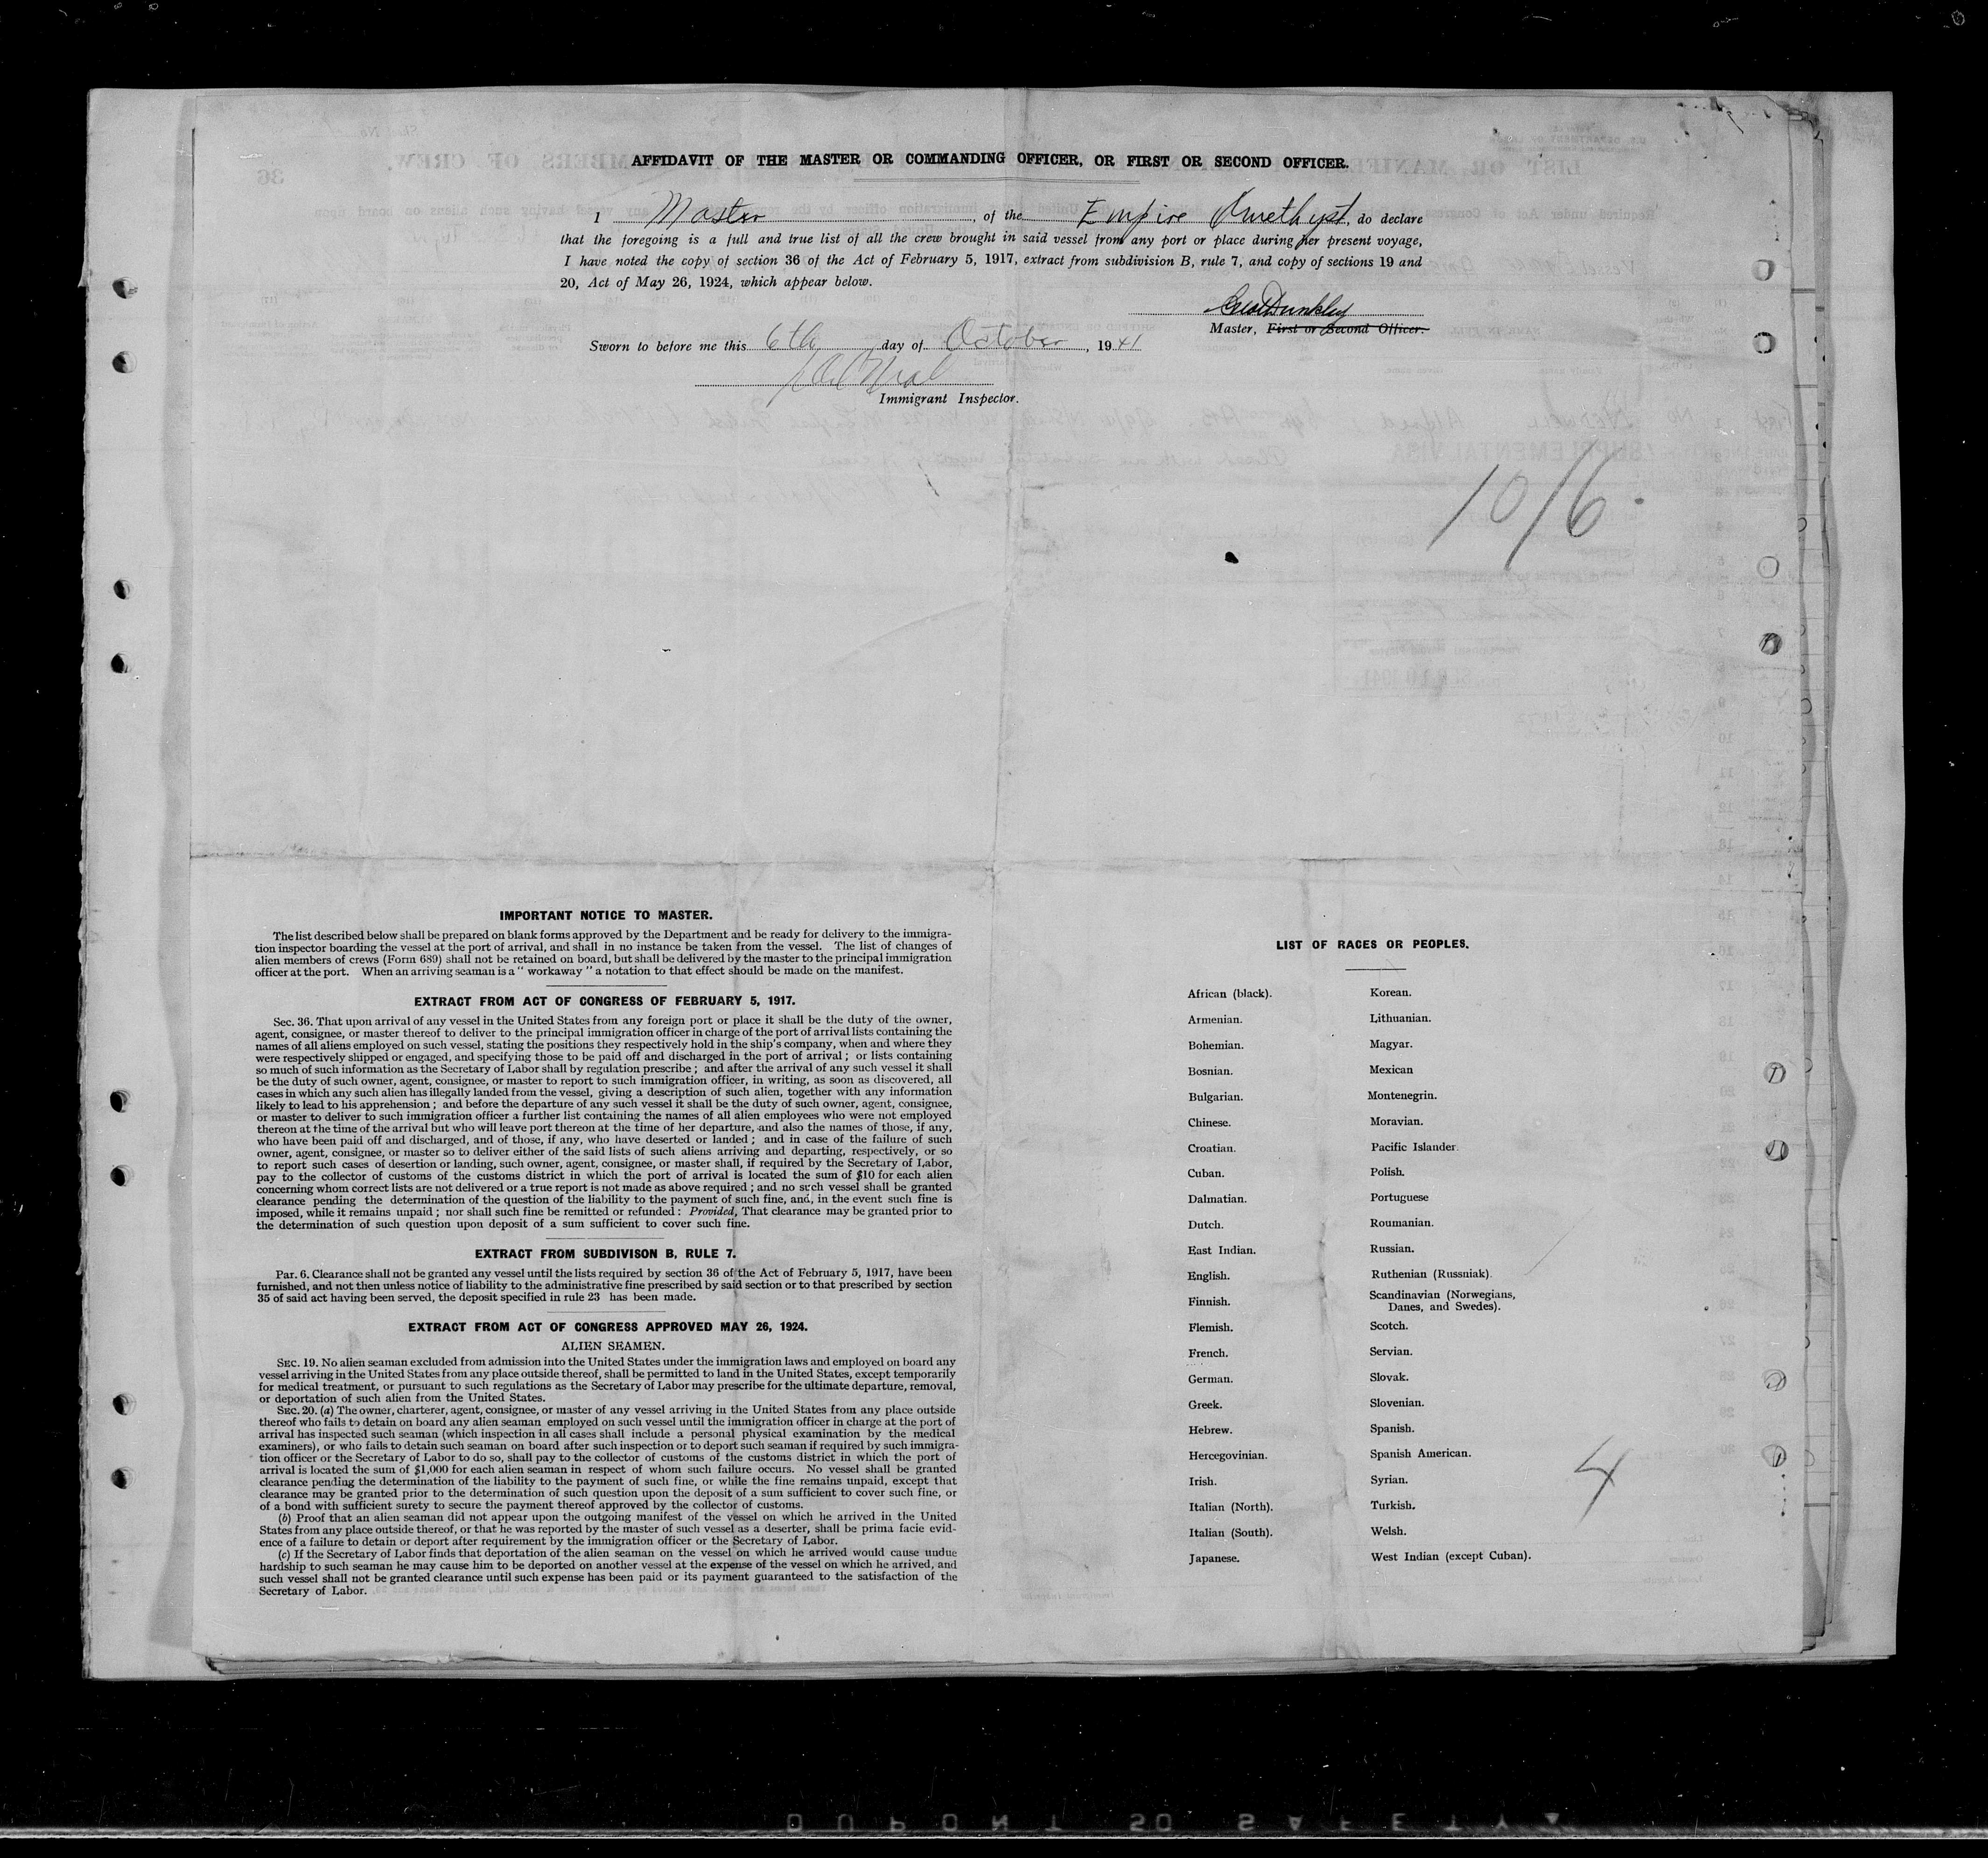 AFFIDAVIT OF THE MASTER OR COMMANDING OFFICER, OR FIRST OR SECOND OFFICER.
I Master, of the Empire Amethyst, do declare
that the foregoing is a full and true list of all the crew brought in said vessel from any port or place during her present voyage,
I have noted the copy of section 36 of the Act of February 5, 1917, extract from subdivision B, rule 7, and copy of sections 19 and
20, Act of May 26, 1924, which appear below.
Geo Dunkley
Master, First or Second Officer.
Sworn to before me this 6th day of October, 1941
Immigrant Inspector.
10/6
IMPORTANT NOTICE TO MASTER.
The list described below shall be prepared on blank forms approved by the Department and be ready for delivery to the immigra-
tion inspector boarding the vessel at the port of arrival, and shall in no instance be taken from the vessel. The list of changes of
alien members of crews (Form 689) shall not be retained on board, but shall be delivered by the master to the principal immigration
officer at the port. When an arriving seaman is a " workaway " a notation to that effect should be made on the manifest.
EXTRACT FROM ACT OF CONGRESS OF FEBRUARY 5, 1917.
Sec. 36. That upon arrival of any vessel in the United States from any foreign port or place it shall be the duty of the owner,
agent, consignee, or master thereof to deliver to the principal immigration officer in charge of the port of arrival lists containing the
names of all aliens employed on such vessel, stating the positions they respectively hold in the ship's company, when and where they
were respectively shipped or engaged, and specifying those to be paid off and discharged in the port of arrival ; or lists containing
so much of such information as the Secretary of Labor shall by regulation prescribe ; and after the arrival of any such vessel it shall
be the duty of such owner, agent, consignee, or master to report to such immigration officer, in writing, as soon as discovered, all
cases in which any such alien has illegally landed from the vessel, giving a description of such alien, together with any information
likely to lead to his apprehension ; and before the departure of any such vessel it shall be the duty of such owner, agent, consignee,
or master to deliver to such immigration officer a further list containing the names of all alien employees who were not employed
thereon at the time of the arrival but who will leave port thereon at the time of her departure, and also the names of those, if any,
who have been paid off and discharged, and of those, if any, who have deserted or landed ; and in case of the failure of such
owner, agent, consignee, or master so to deliver either of the said lists of such aliens arriving and departing, respectively, or so
to report such cases of desertion or landing, such owner, agent, consignee, or master shall, if required by the Secretary of Labor,
pay to the collector of customs of the customs district in which the port of arrival is located the sum of $10 for each alien
concerning whom correct lists are not delivered or a true report is not made as above required ; and no such vessel shall be granted
clearance pending the determination of the question of the liability to the payment of such fine, and, in the event such fine is
imposed, while it remains unpaid ; nor shall such fine be remitted or refunded : Provided, That clearance may be granted prior to
the determination of such question upon deposit of a sum sufficient to cover such fine.
EXTRACT FROM SUBDIVISON B, RULE 7.
Par. 6. Clearance shall not be granted any vessel until the lists required by section 36 of the Act of February 5, 1917, have been
furnished, and not then unless notice of liability to the administrative fine prescribed by said section or to that prescribed by section
35 of said act having been served, the deposit specified in rule 23 has been made.
EXTRACT FROM ACT OF CONGRESS APPROVED MAY 26, 1924.
ALIEN SEAMEN.
SEC. 19. No alien seaman excluded from admission into the United States under the immigration laws and employed on board any
vessel arriving in the United States from any place outside thereof, shall be permitted to land in the United States, except temporarily
for medical treatment, or pursuant to such regulations as the Secretary of Labor may prescribe for the ultimate departure, removal,
or deportation of such alien from the United States.
SEC. 20. (a) The owner, charterer, agent, consignee, or master of any vessel arriving in the United States from any place outside
thereof who fails to detain on board any alien seaman employed on such vessel until the immigration officer in charge at the port of
arrival has inspected such seaman (which inspection in all cases shall include a personal physical examination by the medical
examiners), or who fails to detain such seaman on board after such inspection or to deport such seaman if required by such immigra-
tion officer or the Secretary of Labor to do so, shall pay to the collector of customs of the customs district in which the port of
arrival is located the sum of $1,000 for each alien seaman in respect of whom such failure occurs. No vessel shall be granted
clearance pending the determination of the liability to the payment of such fine, or while the fine remains unpaid, except that
clearance may be granted prior to the determination of such question upon the deposit of a sum sufficient to cover such fine, or
of a bond with sufficient surety to secure the payment thereof approved by the collector of customs.
(b) Proof that an alien seaman did not appear upon the outgoing manifest of the vessel on which he arrived in the United
States from any place outside thereof, or that he was reported by the master of such vessel as a deserter, shall be prima facie evid-
ence of a failure to detain or deport after requirement by the immigration officer or the Secretary of Labor.
(c) If the Secretary of Labor finds that deportation of the alien seaman on the vessel on which he arrived would cause undue
hardship to such seaman he may cause him to be deported on another vessel at the expense of the vessel on which he arrived, and
such vessel shall not be granted clearance until such expense has been paid or its payment guaranteed to the satisfaction of the
Secretary of Labor.
LIST OF RACES OR PEOPLES.
African (black).
Armenian.
Bohemian.
Bosnian.
Bulgarian.
Chinese.
Croatian.
Cuban.
Dalmatian.
Dutch.
East Indian.
English.
Finnish.
Flemish.
French.
German.
Greek.
Hebrew.
Hercegovinian.
Irish.
Italian (North).
Italian (South).
Japanese.
Korean.
Lithuanian.
Magyar.
Mexican
Montenegrin.
Moravian.
Pacific Islander.
Polish.
Portuguese
Roumanian.
Russian.
Ruthenian (Russniak).
Scandinavian (Norwegians,
Danes, and Swedes).
Scotch.
Servian.
Slovak.
Slovenian.
Spanish.
Spanish American.
Syrian.
Turkish.
Welsh.
West Indian (except Cuban).
4
DUPONT 50 SAFETY